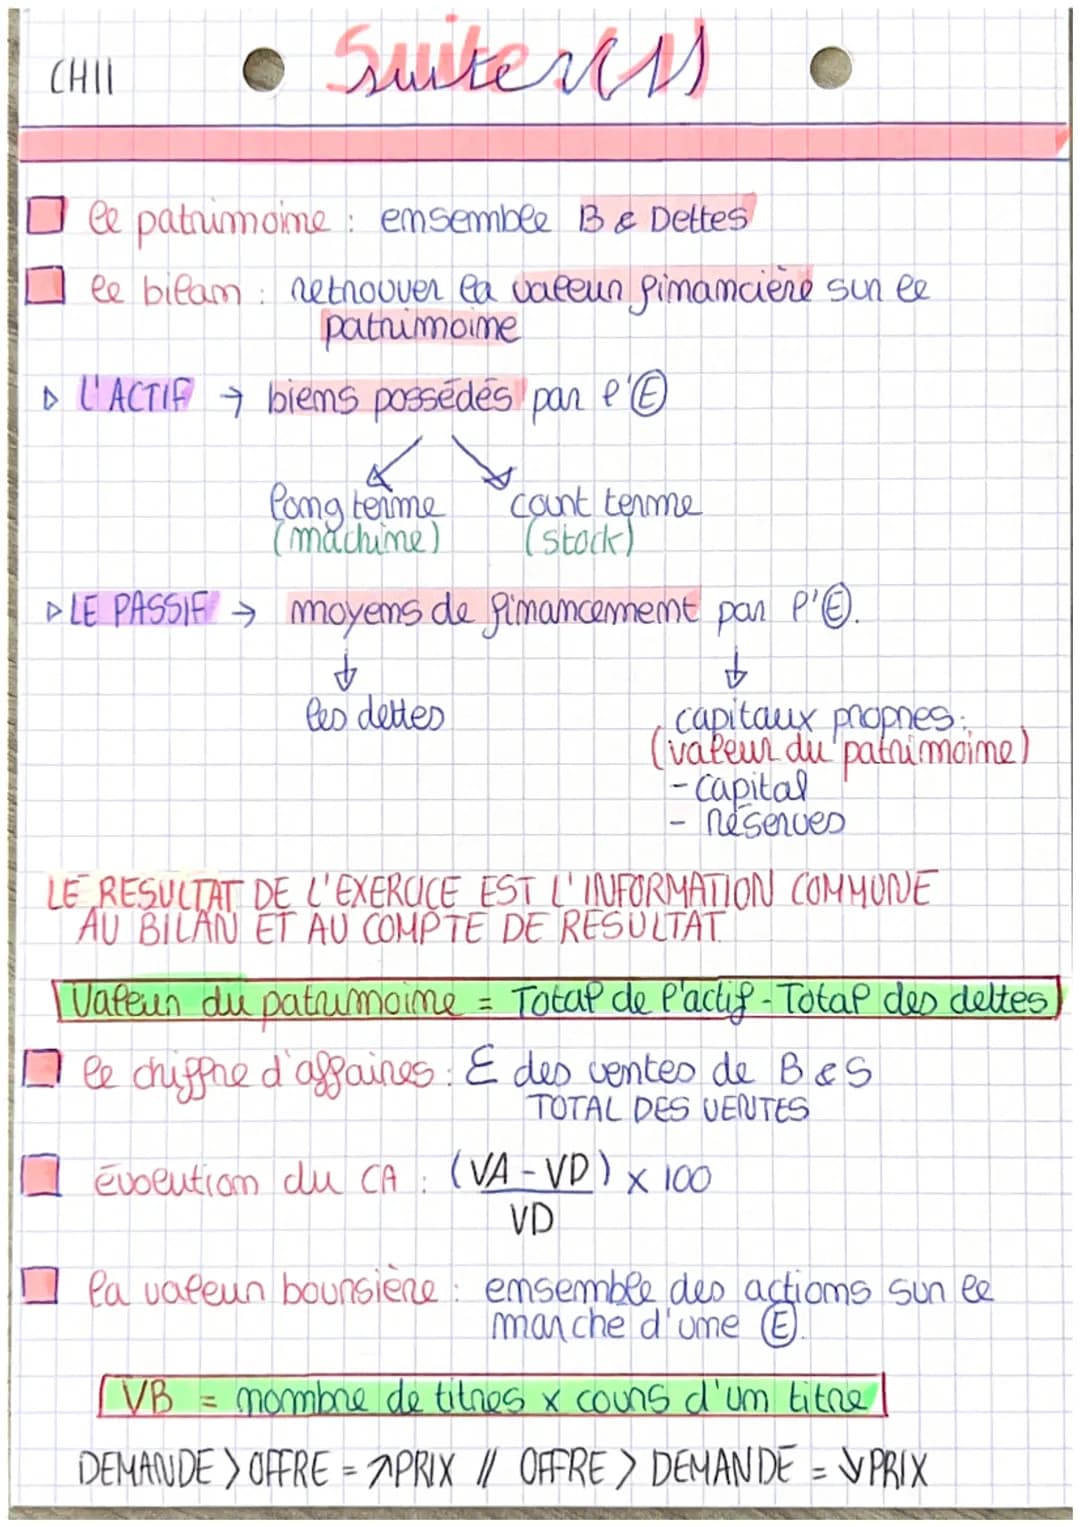 CH11 Suite (1)
le patrimoine : ensemble B & Dettes
le bilan : retrouver la valeur financière sur le
patrimoine
▷ L'ACTIF → biens possédés par l'Ⓔ
long terme court terme
(machine) (stock)
▷ LE PASSIF → moyens de financement par l'Ⓔ.
↓ ↓
les dettes capitaux propres :
(valeur du patrimoine)
- capital
- réserves
LE RESULTAT DE L'EXERCICE EST L'INFORMATION COMMUNE
AU BILAN ET AU COMPTE DE RESULTAT
Valeur du patrimoine = Total de l'actif - Total des dettes
le chiffre d'affaires : Σ des ventes de B & S
TOTAL DES VENTES
évolution du CA : (VA - VD) x 100
VD
la valeur boursière : ensemble des actions sur le
marche d'une Ⓔ.
VB = nombre de titres x cours d'un titre
DEMANDE > OFFRE = ↗ PRIX // OFFRE > DEMANDE = ↘ PRIX